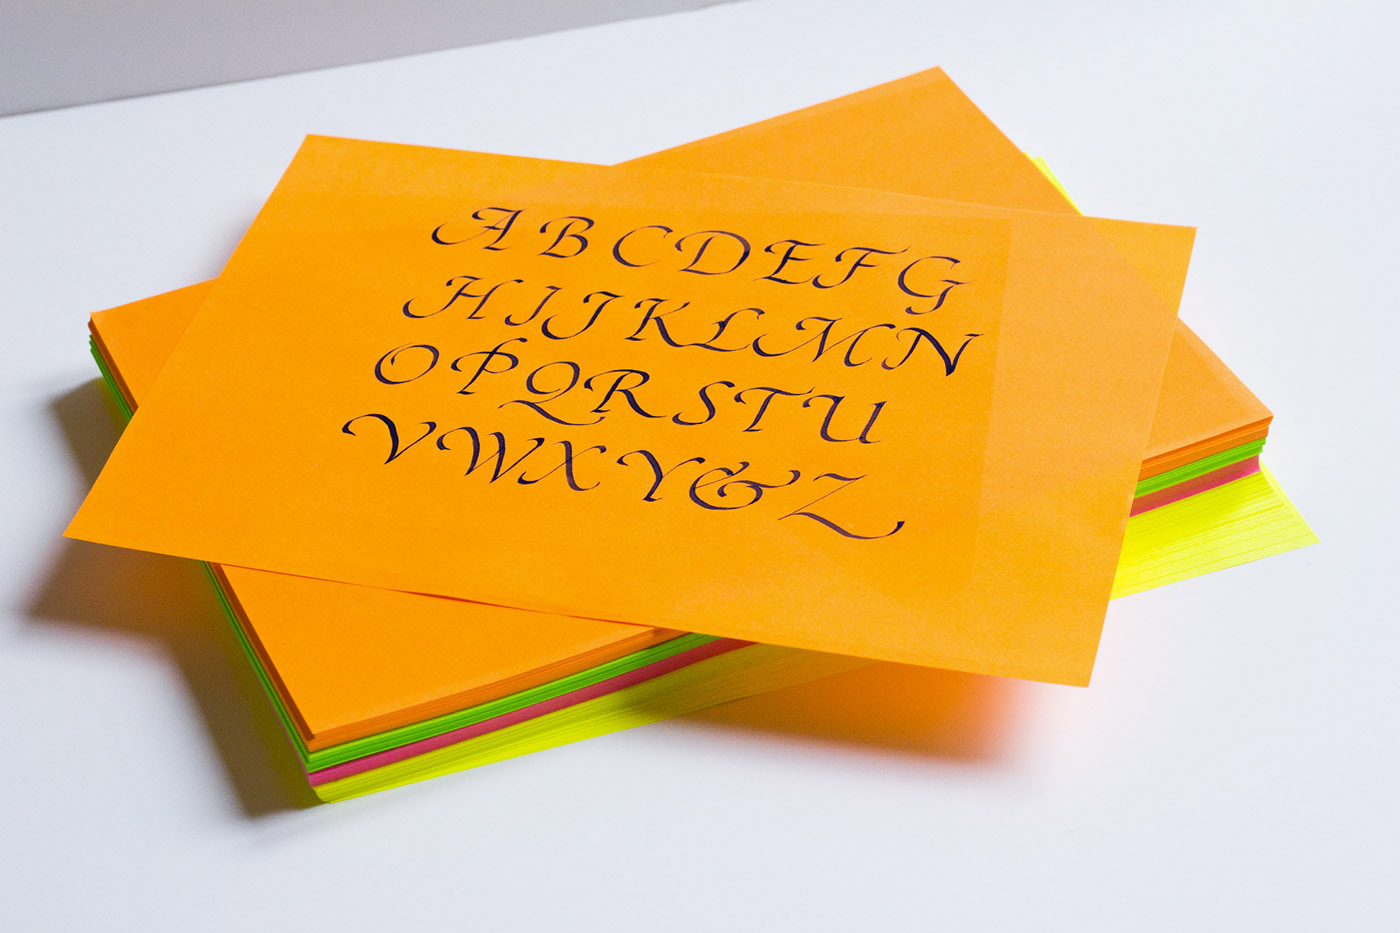 ABCDEFG
HIJKLMN
OPQRSTU
VWXY&Z